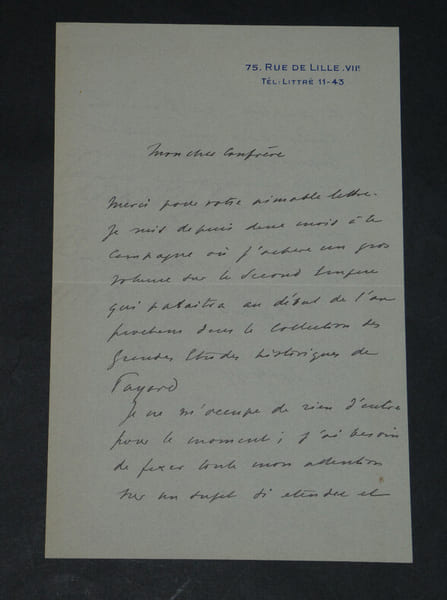 75. RUE DE LILLE .VIIE
TÉL: LITTRÉ 11-43
Mon cher Confrère
Merci pour votre aimable lettre.
Je suis depuis deux mois à la
campagne où j'achève un gros
volume sur le Second Empire
qui paraîtra au début de l'an
prochain dans la Collection des
Grandes Etudes historiques de
Fayard
Je ne m'occupe de rien d'autre
pour le moment ; j'ai besoin
de fixer toute mon attention
sur un sujet si étendu et